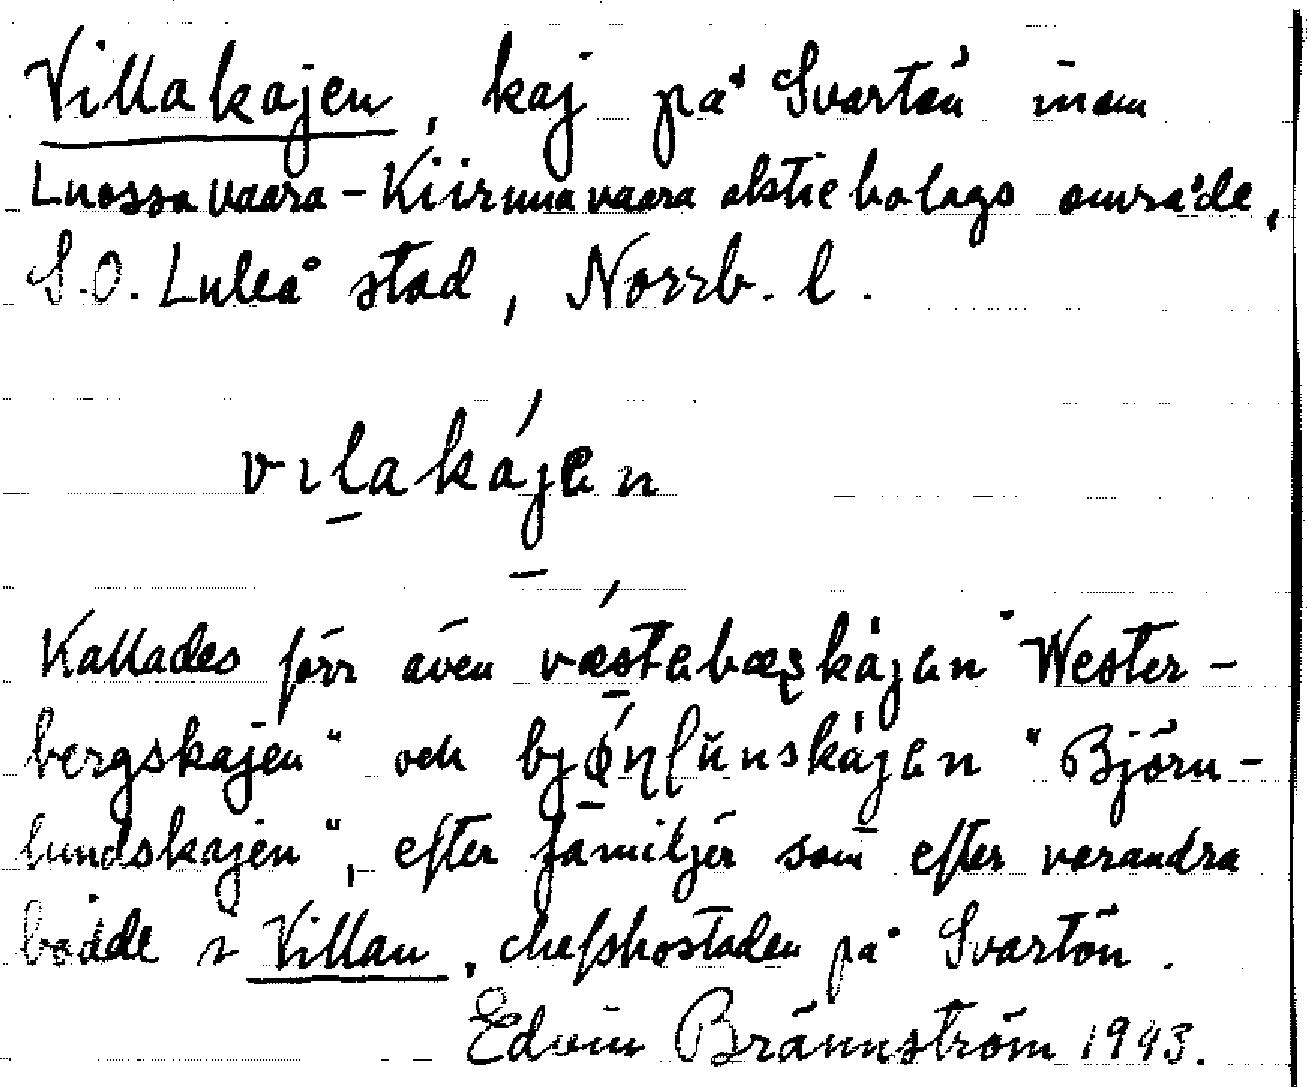 Villakajen, kaj på Svartön inom
Luossavaara-Kiirunavaara aktiebolags område,
S.O. Luleå stad, Norrb. l.
vılakájen
Kallades förr även "Wester-
bergskajen" och "Björn-
lundskajen", efter familjer som efter varandra
bodde i Villan, chefsbostaden på Svartön.
Edvin Brännström 1943.